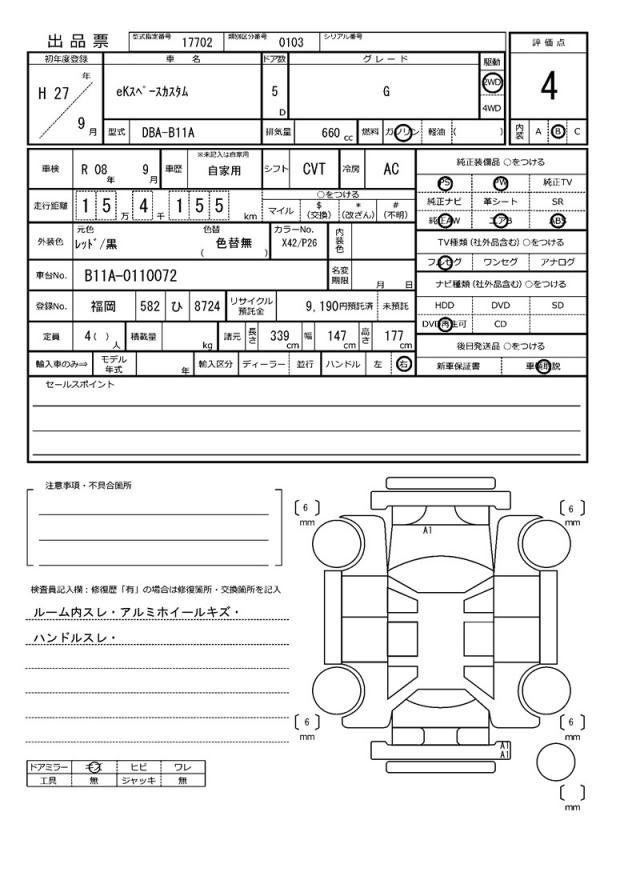 出品票 型式指定番号 17702 類別区分番号 0103 シリアル番号
評価点
4
内装 A B C
初年度登録 車名 ドア数 グレード 駆動
H 27 年 9 月 eKスペースカスタム 5 D G 2WD 4WD
型式 DBA-B11A 排気量 660 cc 燃料 ガソリン 軽油 ( )
車検 R 08 年 9 月 車歴 ※未記入は自家用 自家用 シフト CVT 冷房 AC
走行距離 1 5 万 4 千 1 5 5 km ○をつける
マイル $ (交換) * (改ざん) # (不明)
外装色 元色 レッド/黒 色替 ( 色替無 ) カラーNo. X42/P26 内装色
車台No. B11A-0110072 名変期限 月 日
登録No. 福岡 582 ひ 8724 リサイクル預託金 9,190円預託済 未預託
定員 4( ) 人 積載量 kg 諸元 長さ 339 cm 幅 147 cm 高さ 177 cm
輸入車のみ⇒ モデル年式 年 輸入区分 ディーラー 並行 ハンドル 左 右
純正装備品 ○をつける
PS PW 純正TV
純正ナビ 革シート SR
純正AW エアB ABS
TV種類 (社外品含む) ○をつける
フルセグ ワンセグ アナログ
ナビ種類 (社外品含む) ○をつける
HDD DVD SD
DVD再生可 CD
後日発送品 ○をつける
新車保証書 車輌取説
セールスポイント
注意事項・不具合箇所
検査員記入欄：修復歴「有」の場合は修復箇所・交換箇所を記入
ルーム内スレ・アルミホイールキズ・
ハンドルスレ・
ドアミラー キズ ヒビ ワレ
工具 無 ジャッキ 無
[ 6 ] mm
A1
[ 6 ] mm
[ 6 ] mm
A1
A1
[ 6 ] mm
[ ] mm